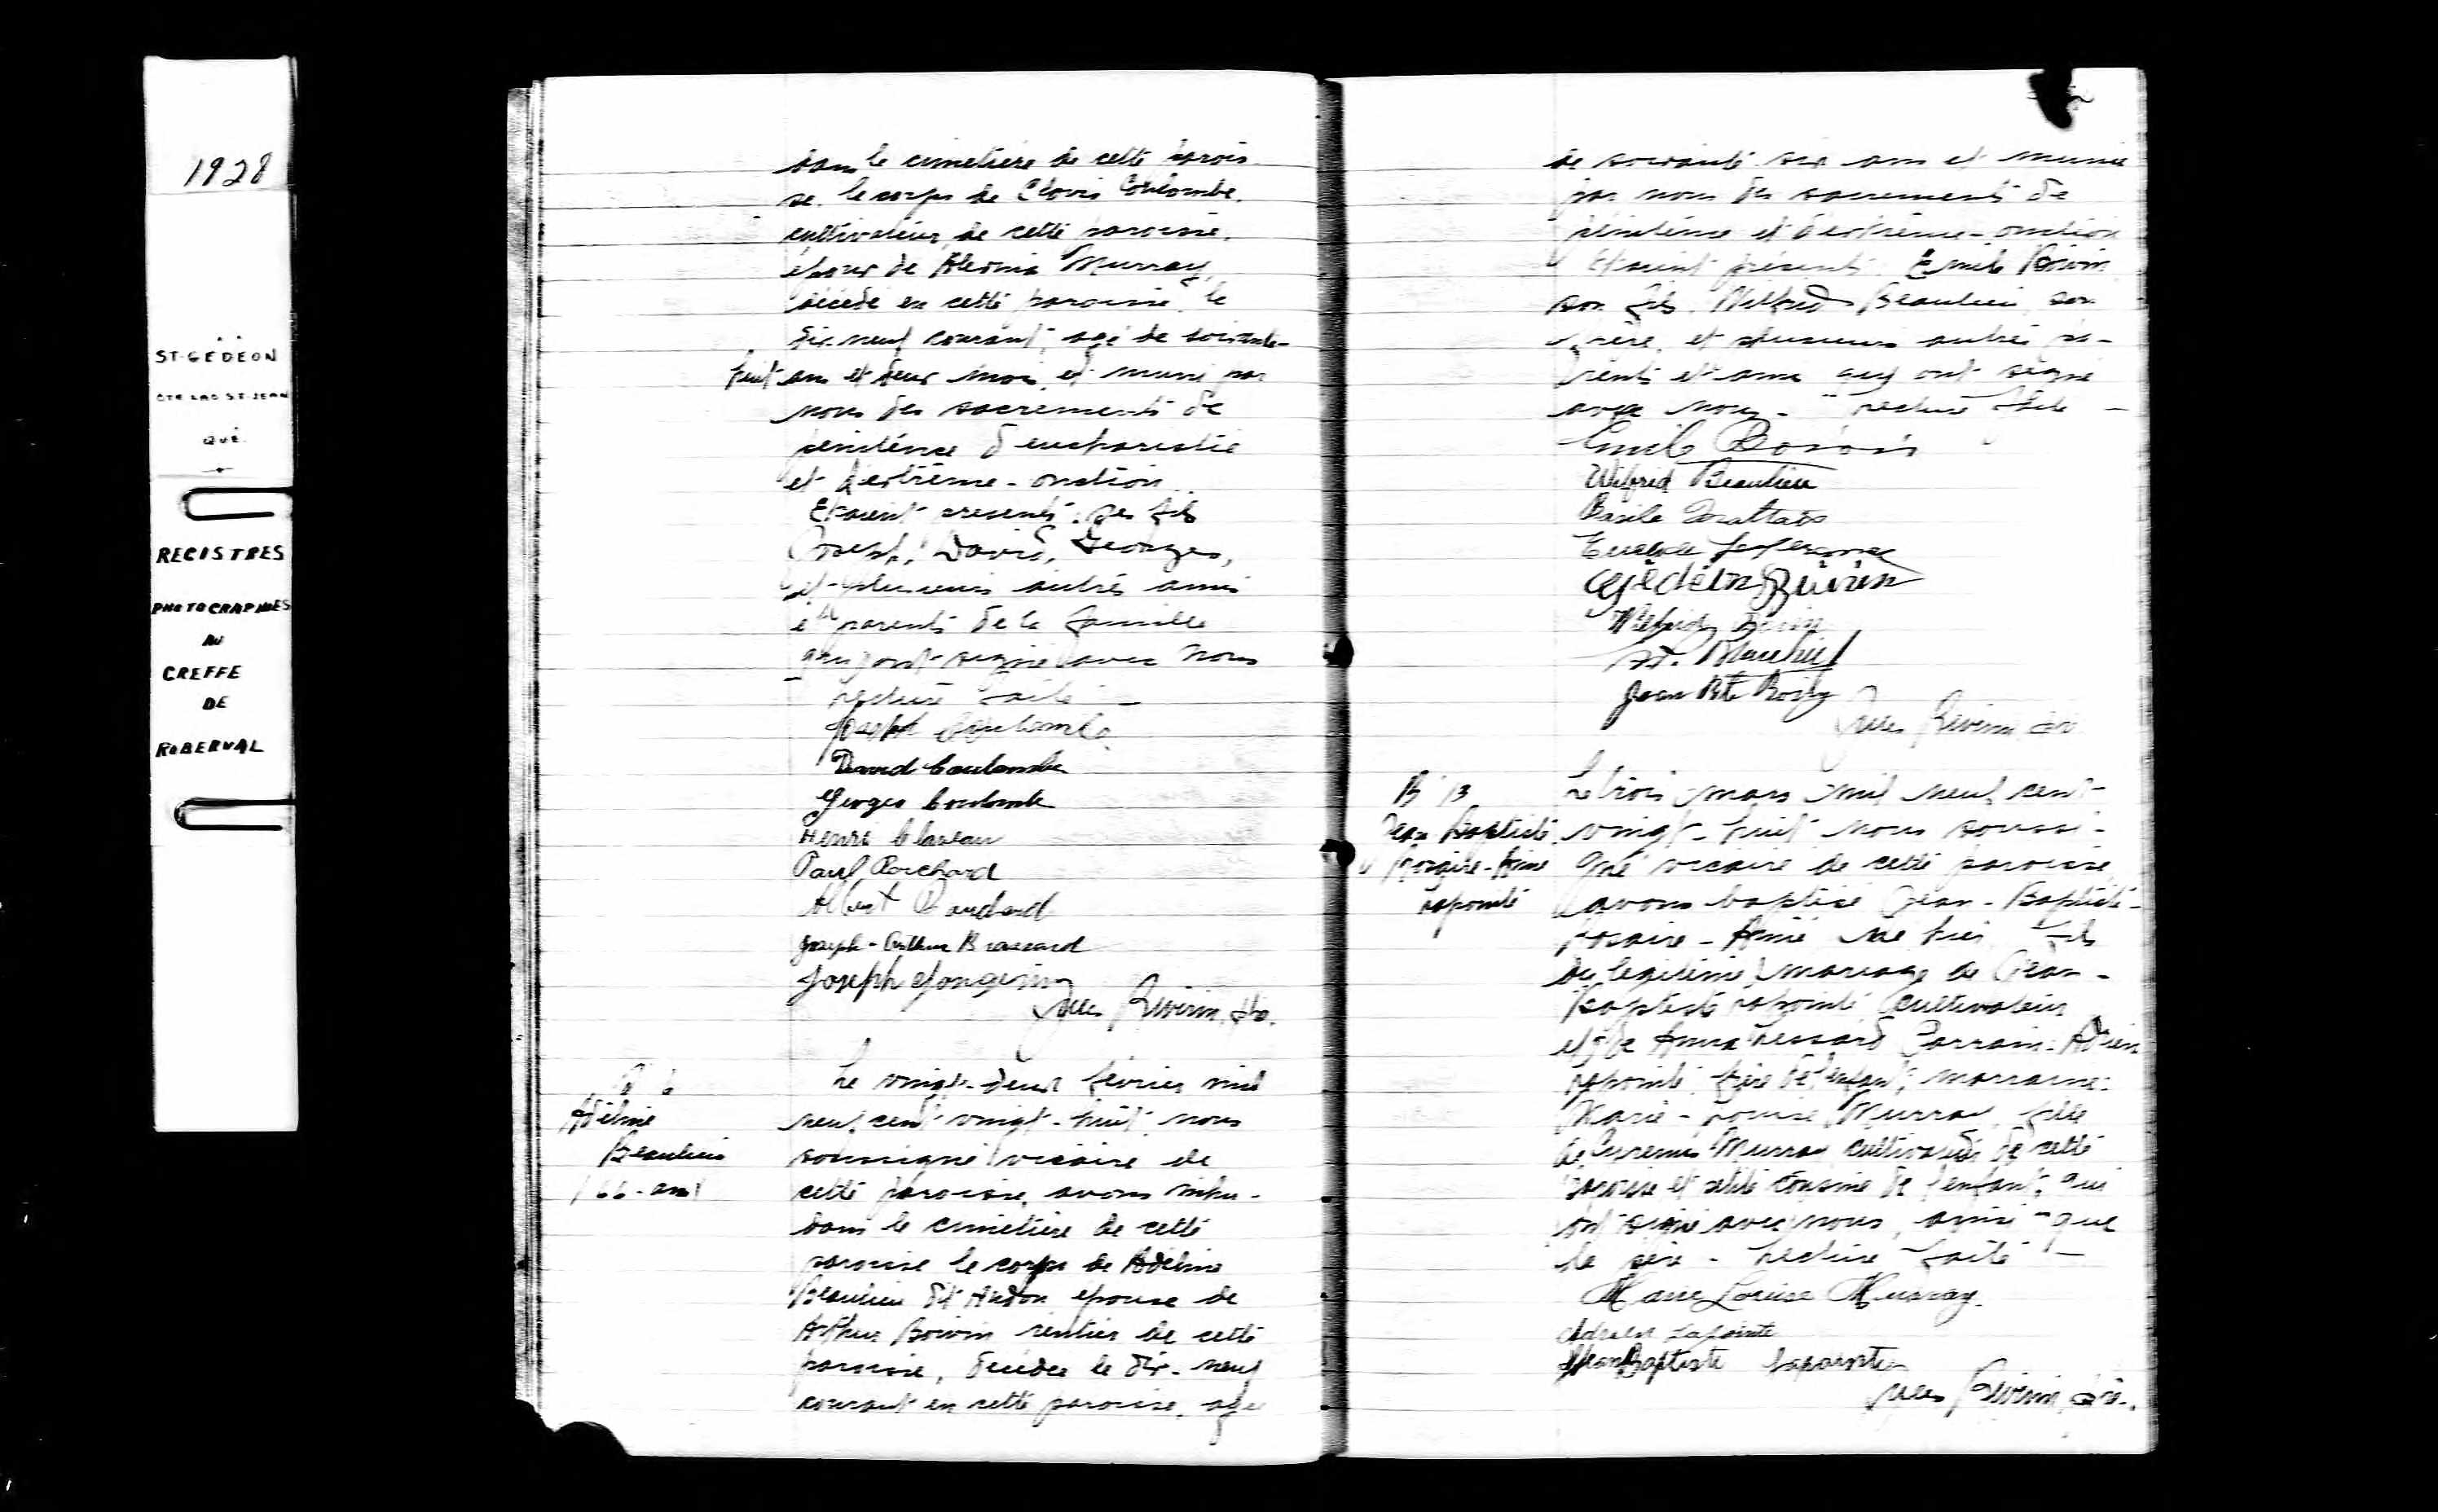 1928
ST-GÉDÉON
CTE LAC ST-JEAN
QUÉ.
REGISTRES
PHOTOGRAPHIÉS
AU
GREFFE
DE
ROBERVAL
dans le cimetière de cette parois-
se. le corps de Clovis Coulombe,
cultivateur de cette paroisse,
époux de Murray,
décédé en cette paroisse, le
dix-neuf courant, agé de soixante-
huit ans et deux mois, et muni par
nous des sacrements de
pénitence d'eucharistie
et d'extrême-onction.
Etaient présents: ses fils
Joseph, David, Georges,
et plusieurs autres amis
et parents de la famille
qui ont signé avec nous
lecture faite —
Joseph Coulombe
David Coulombe
Georges Coulombe
Henri
Paul Bouchard
Albert Bouchard
Joseph-Arthur Brassard
Joseph
Jules Riverin, ptr.
Adéline
Beaulieu
66-ans
Le vingt-deux février mil
neuf cent vingt-huit, nous
soussigné vicaire de
cette paroisse, avons inhu-
dans le cimetière de cette
paroisse le corps de Adéline
Beaulieu dit Audon épouse de
Arthur Boivin rentier de cette
paroisse, décédée le dix-neuf
courant en cette paroisse, agée
de soixante six ans et munie
par nous des sacrements de
pénitence et d'extrême-onction
Etaient présents: Emile Boivin
son fils, Wilfrid Beaulieu, son
frère, et plusieurs autres pa-
rents et amis qui ont signé
avec nous - lecture faite —
Emile Boivin
Wilfrid Beaulieu
Basile
Gédéon Boivin
Wilfrid Boivin
Jean Bte Boily
Jules Riverin, ptr.
B 13
Jean Baptiste
Rosaire-Aimé
Lapointe
Le trois mars mil neuf cent
vingt-huit nous soussi-
gné vicaire de cette paroisse
avons baptisé Jean-Baptiste-
Rosaire-Aimé né hier, fils
du légitime mariage de Jean-
Baptiste Lapointe cultivateur
et de Anna Lessard Parrain: Adrien
Lapointe, frère de l'enfant; marraine:
Marie-Louise Murray, fille
de Murray cultivateur de cette
paroisse et petite cousine de l'enfant, qui
ont signé avec nous, ainsi que
le père - Lecture faite —
Marie Louise Murray.
Adrien Lapointe
Jean Baptiste Lapointe
Jules Riverin, ptr.